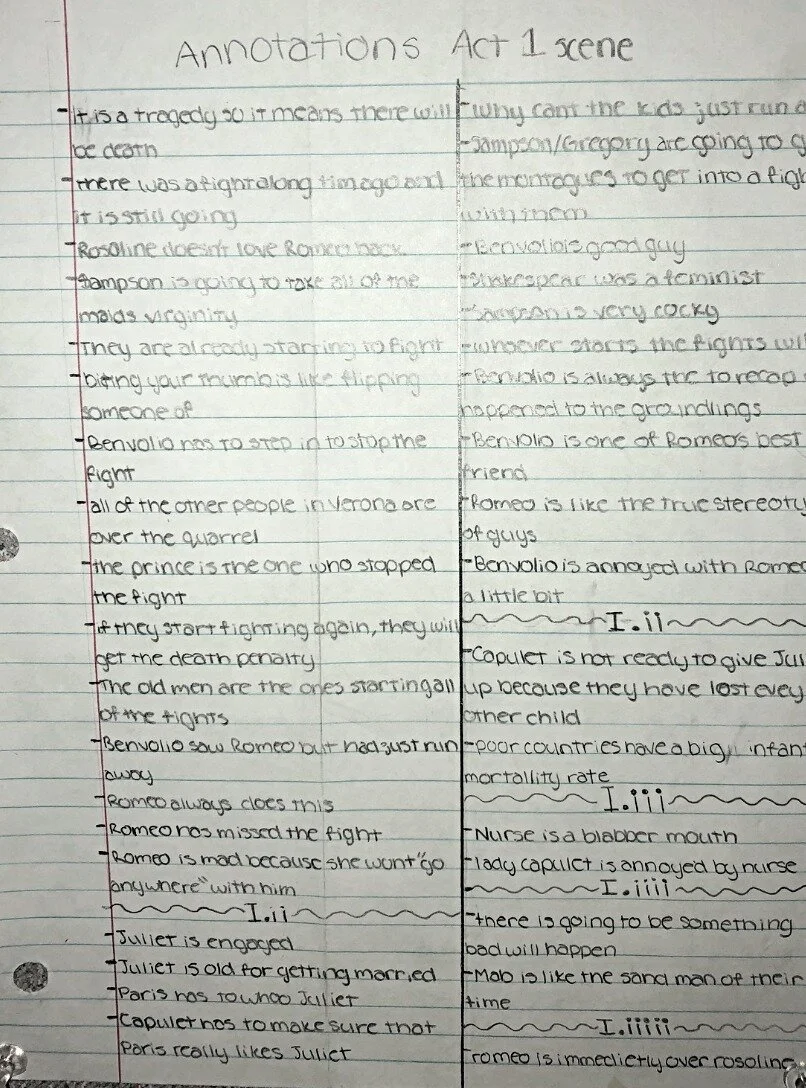 Annotations Act 1 scene
-it is a tragedy so it means there will
be death
-there was a fight along time ago and
it is still going
-Rosaline doesn't love Romeo back
-Sampson is going to take all of the
maids virginity
-They are already starting to fight
-biting your thumb is like flipping
someone of
-Benvolio has to step in to stop the
fight
-all of the other people in Verona are
over the quarrel
-the prince is the one who stopped
the fight
-if they start fighting again, they will
get the death penalty
-The old men are the ones starting all
of the fights
-Benvolio saw Romeo but had just run
away
-Romeo always does this
-Romeo has missed the fight
-Romeo is mad because she wont "go
anywhere" with him
I.ii
-Juliet is engaged
-Juliet is old for getting married
-Paris has to whoo Juliet
-Capulet has to make sure that
Paris really likes Juliet
-why cant the kids just run
-Sampson/Gregory are going to
the montagues to get into a
with them
-Benvolio is good guy
-Shakespear was a feminist
-Sampson is very cocky
-whoever starts the fights
-Benvolio is always the to recap
happened to the groundlings
-Benvolio is one of Romeo's best
friend
-Romeo is like the true
of guys
-Benvolio is annoyed with Romeo
a little bit
I.ii
-Capulet is not ready to give
up because they have lost evey
other child
-poor countries have a big infant
mortallity rate
I.iii
-Nurse is a blabber mouth
-lady capulet is annoyed by nurse
I.iiii
-there is going to be something
bad will happen
-Mab is like the sand man of their
time
I.iiiii
-romeo is immedictly over rosaline